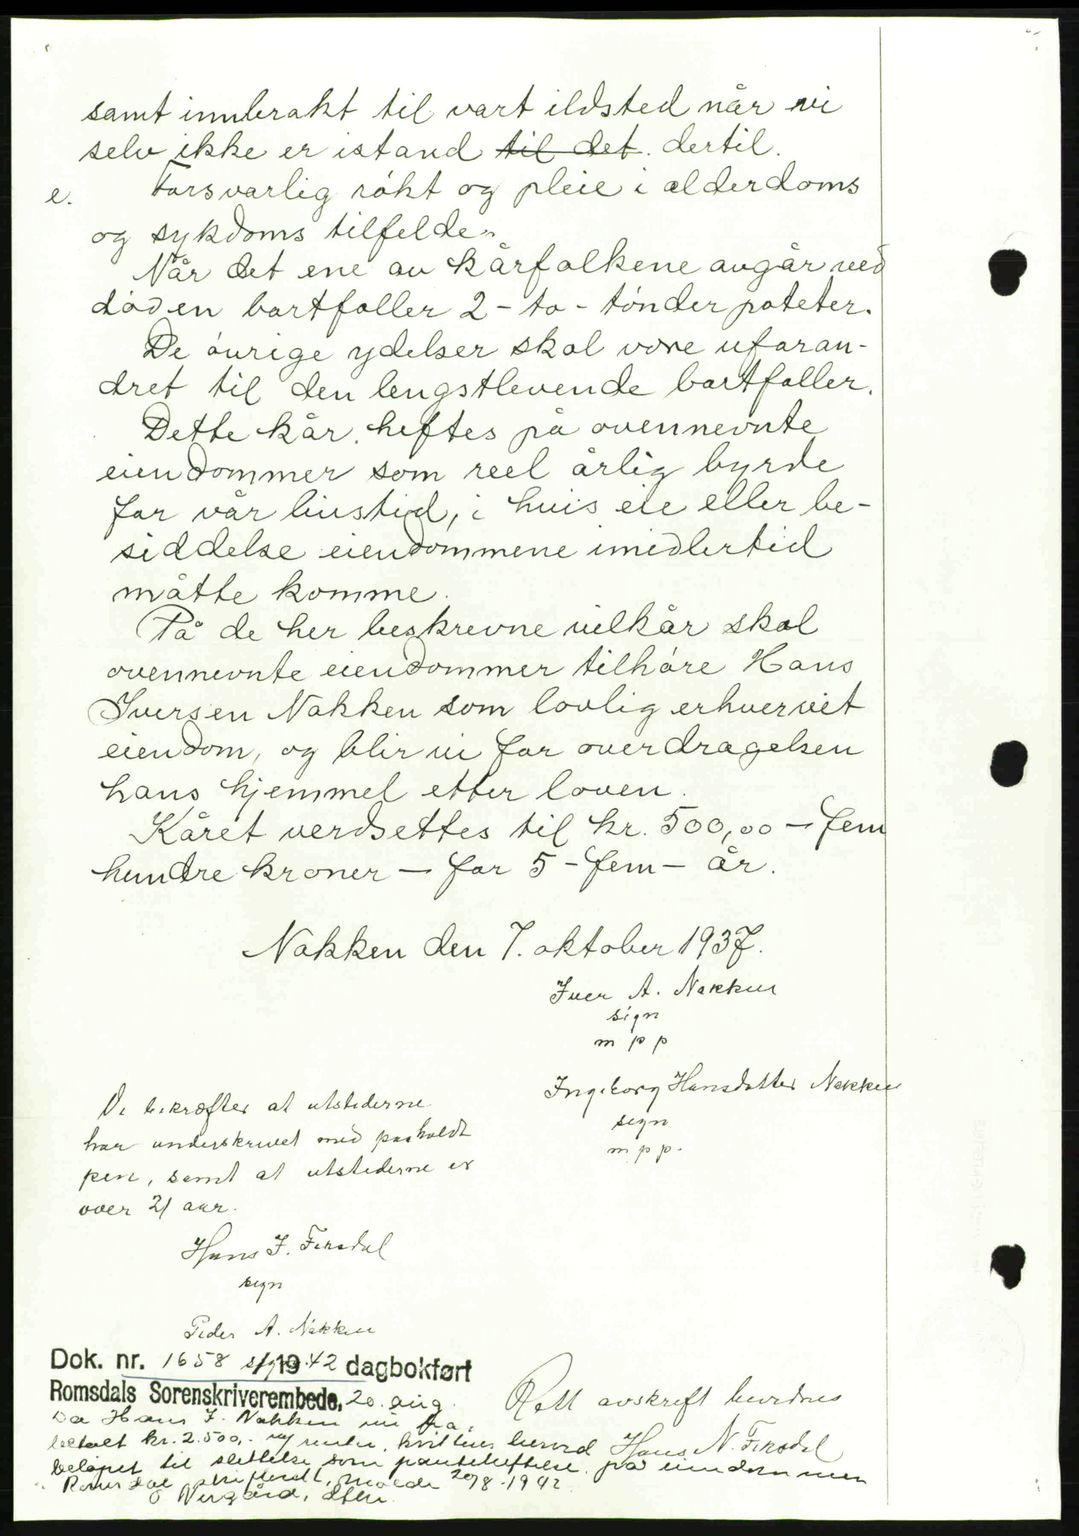 samt innbrakt til vart ildsted når vi
selv ikke er istand til det. dertil.
e. Forsvarlig røkt og pleie i alderdoms
og sykdoms tilfelde.
Når det ene av kårfolkene avgår ved
døden bortfaller 2 - to - tønder poteter.
De øvrige ydelser skal være uforan-
dret til den lengstlevende bortfaller.
Dette kår heftes på ovennevnte
eiendommer som reel årlig byrde
for vår livstid, i hvis eie eller be-
siddelse eiendommene imidlertid
måtte komme.
På de her beskrevne vilkår skal
ovennevnte eiendommer tilhøre Hans
Iversen Nakken som lovlig erhvervet
eiendom, og blir vi for overdragelsen
hans hjemmel etter loven.
Kåret verdsettes til kr. 500,00 - fem
hundre kroner - for 5 - fem - år.
Nakken den 7. oktober 1937.
Iver A. Nakken
sign
m p p
Ingeborg Hansdatter Nakken
sign
m p p.
Vi bekræfter at utstederne
har underskrevet med paaholdt
pen, samt at utstederne er
over 21 aar.
Hans I. Firsdal
sign
Peder A. Nakken
sign
Dok. nr. 1658 1942 dagbokført
Romsdals Sorenskriverembede, 20. aug.
Rett avskrift bevidnes
Hans N. Firsdal
Da Hans I. Nakken nu har
betalt kr. 2.500,- og renter, kvitteres herved
beløpet til slettelse som pantheftelse på eiendommen
Romsdal skifterett, Molde 20/8-1942
O Nergård, dfm.